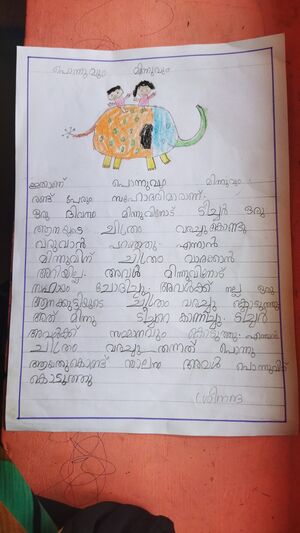 പൊന്നുവും മിന്നുവും
ഇതാണ് പൊന്നുവും മിന്നുവും
രണ്ട് പേരും സഹോദരിമാരാണ്.
ഒരു ദിവസം മിന്നുവിനോട് ടീച്ചർ ഒരു
ആനയുടെ ചിത്രം വരച്ചുകൊണ്ടു
വരുവാൻ പറഞ്ഞു. എന്നാൽ
മിന്നുവിന് ചിത്രം വരക്കാൻ
അറിയില്ല. അവൾ മിന്നുവിനോട്
സഹായം ചോദിച്ചു. അവൾക്ക് നല്ല ഒരു
ആനക്കുട്ടിയുടെ ചിത്രം വരച്ചു കൊടുത്തു
അത് മിന്നു ടീച്ചറെ കാണിച്ചു. ടീച്ചർ
അവൾക്ക് സമ്മാനവും കൊടുത്തു. എന്നാൽ
ചിത്രം വരച്ചു തന്നത് പൊന്നു
ആയതുകൊണ്ട് സമ്മാനം അവൾ പൊന്നുവിന്
കൊടുത്തു
ശ്രീനന്ദ